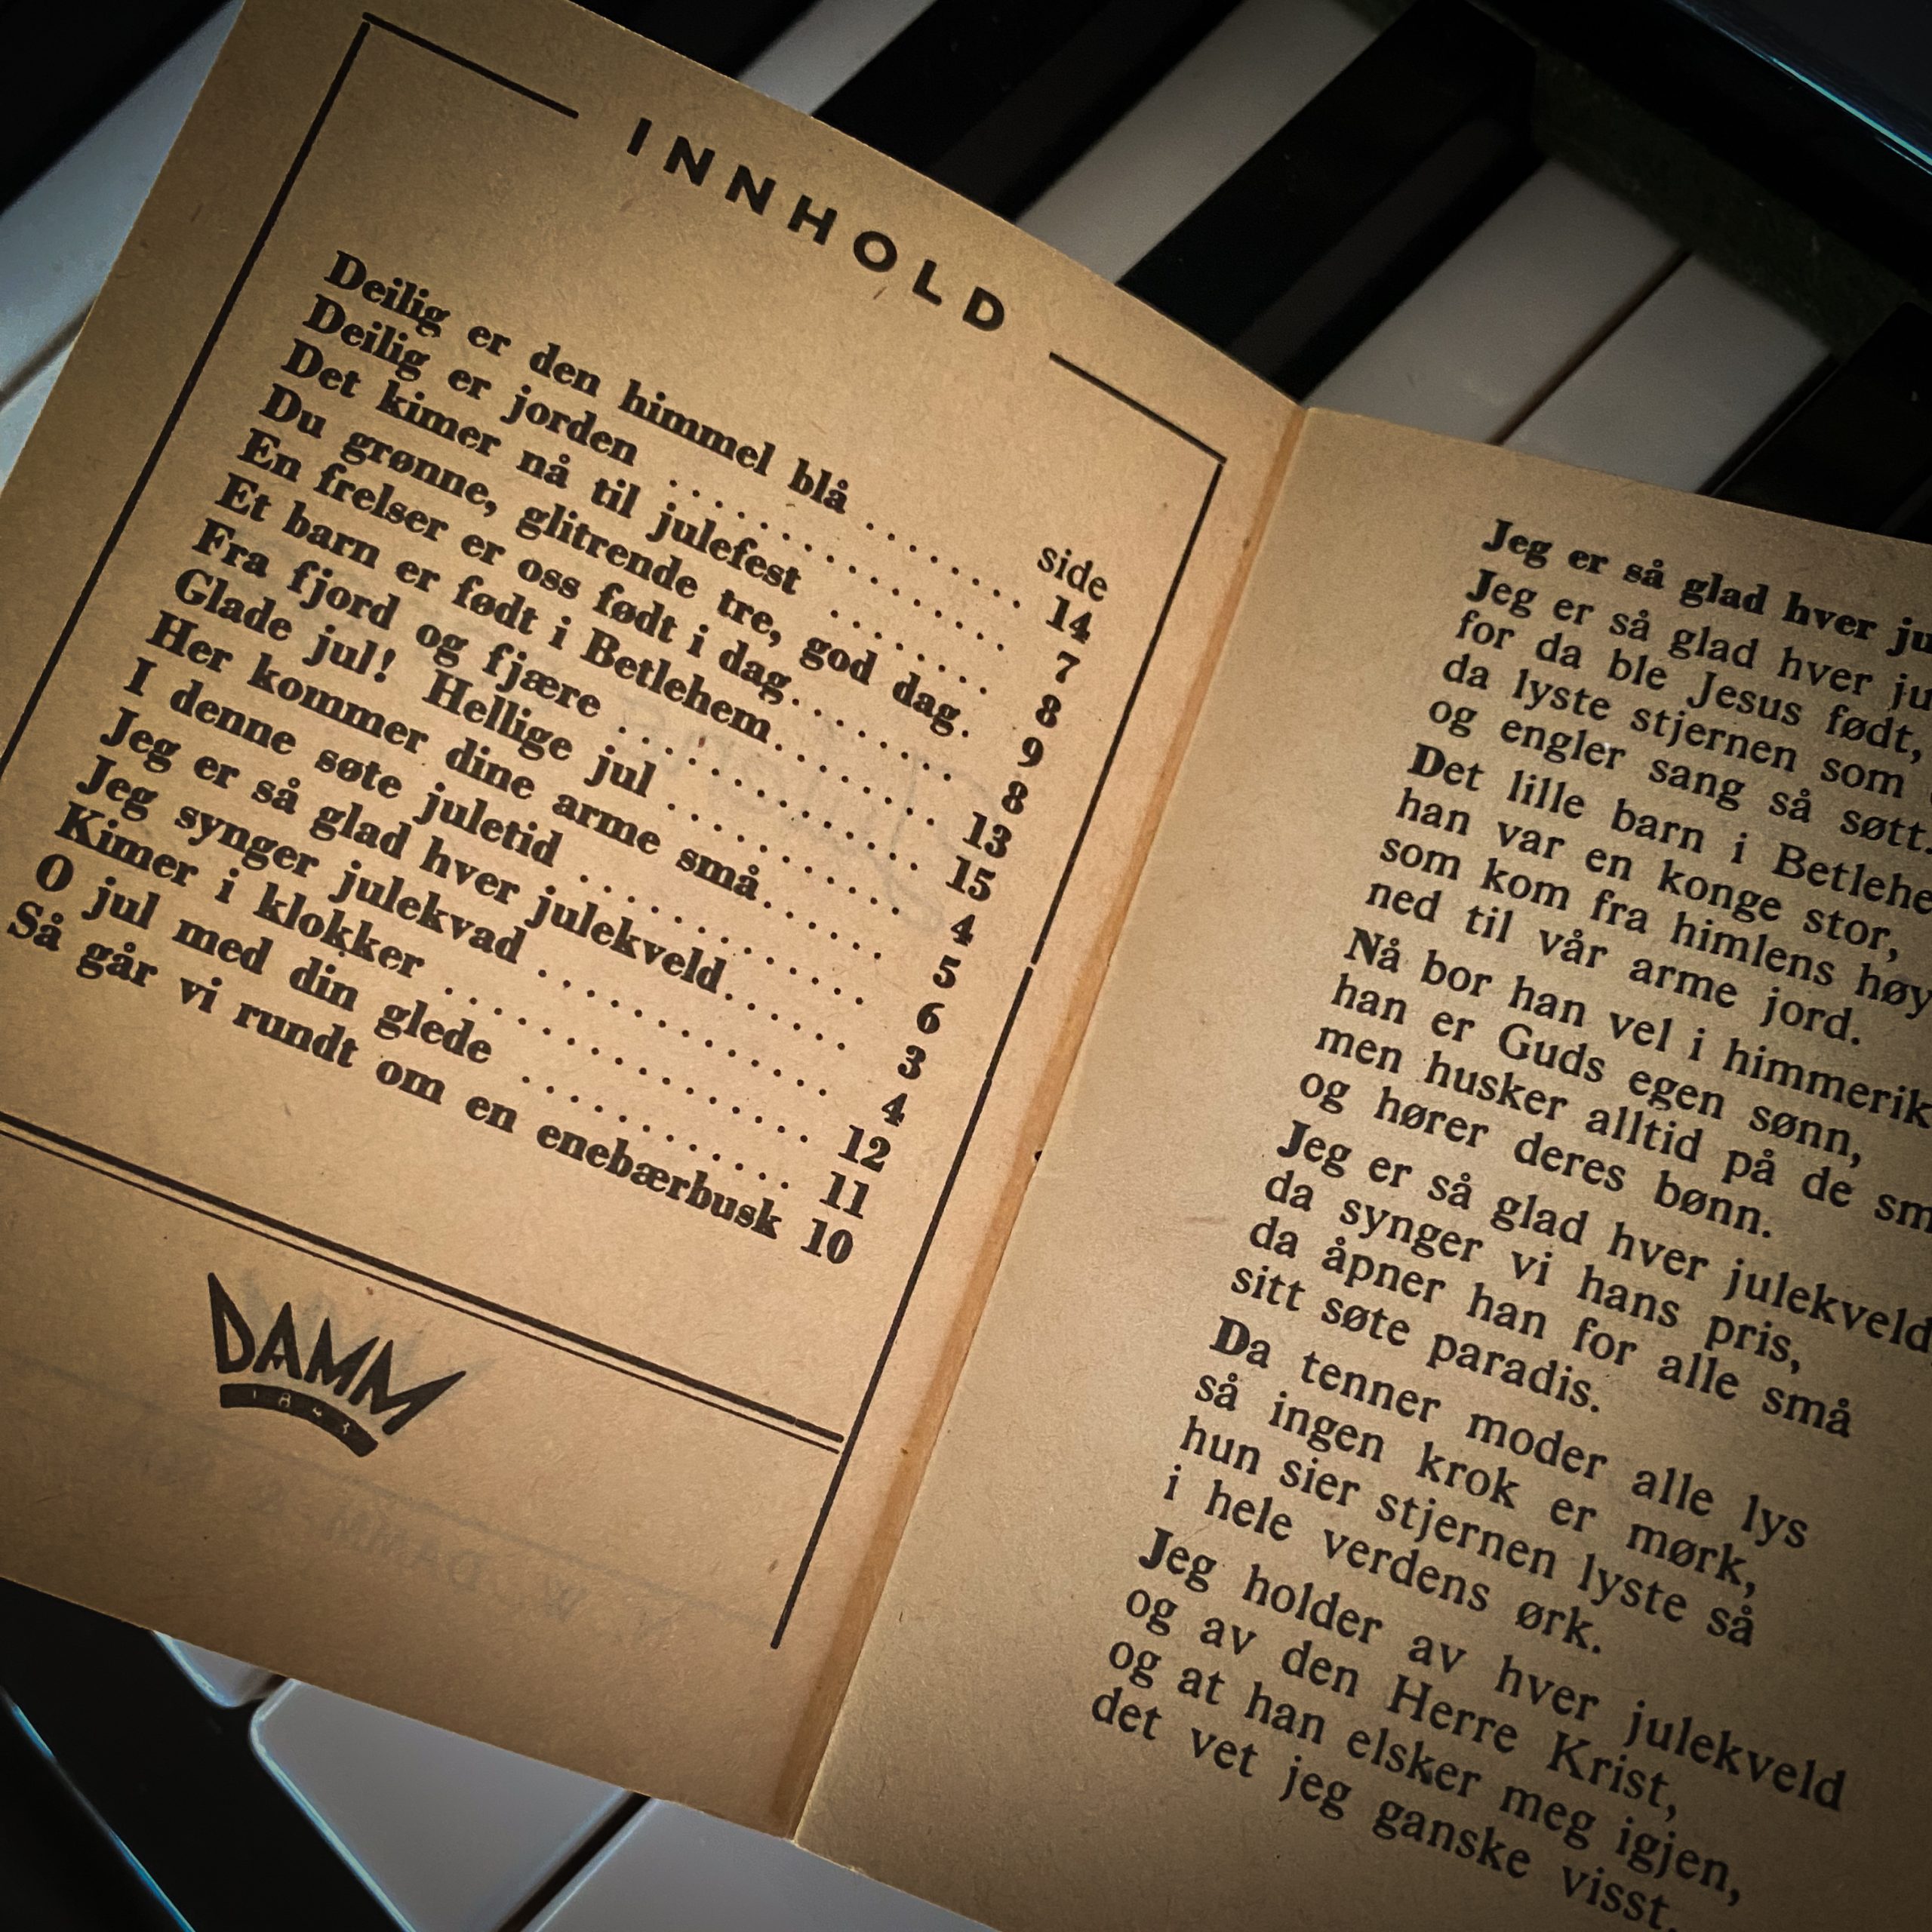 INNHOLD
side
Deilig er den himmel blå ........ 14
Deilig er jorden .............. 7
Det kimer nå til julefest ........ 8
Du grønne, glitrende tre, god dag. 9
En frelser er oss født i dag....... 8
Et barn er født i Betlehem....... 13
Fra fjord og fjære ............. 15
Glade jul! Hellige jul .......... 4
Her kommer dine arme små...... 5
I denne søte juletid ............ 6
Jeg er så glad hver julekveld..... 3
Jeg synger julekvad ............ 4
Kimer i klokker ............... 12
O jul med din glede ........... 11
Så går vi rundt om en enebærbusk 10
DAMM
1843
Jeg er så glad hver
Jeg er så glad hver
for da ble Jesus født,
da lyste stjernen som
og engler sang så søtt.
Det lille barn i
han var en konge stor,
som kom fra himlens
ned til vår arme jord.
Nå bor han vel i himmerik
han er Guds egen sønn,
men husker alltid på de
og hører deres bønn.
Jeg er så glad hver julekveld
da synger vi hans pris,
da åpner han for alle små
sitt søte paradis.
Da tenner moder alle lys
så ingen krok er mørk,
hun sier stjernen lyste så
i hele verdens ørk.
Jeg holder av hver julekveld
og av den Herre Krist,
og at han elsker meg igjen,
det vet jeg ganske visst.